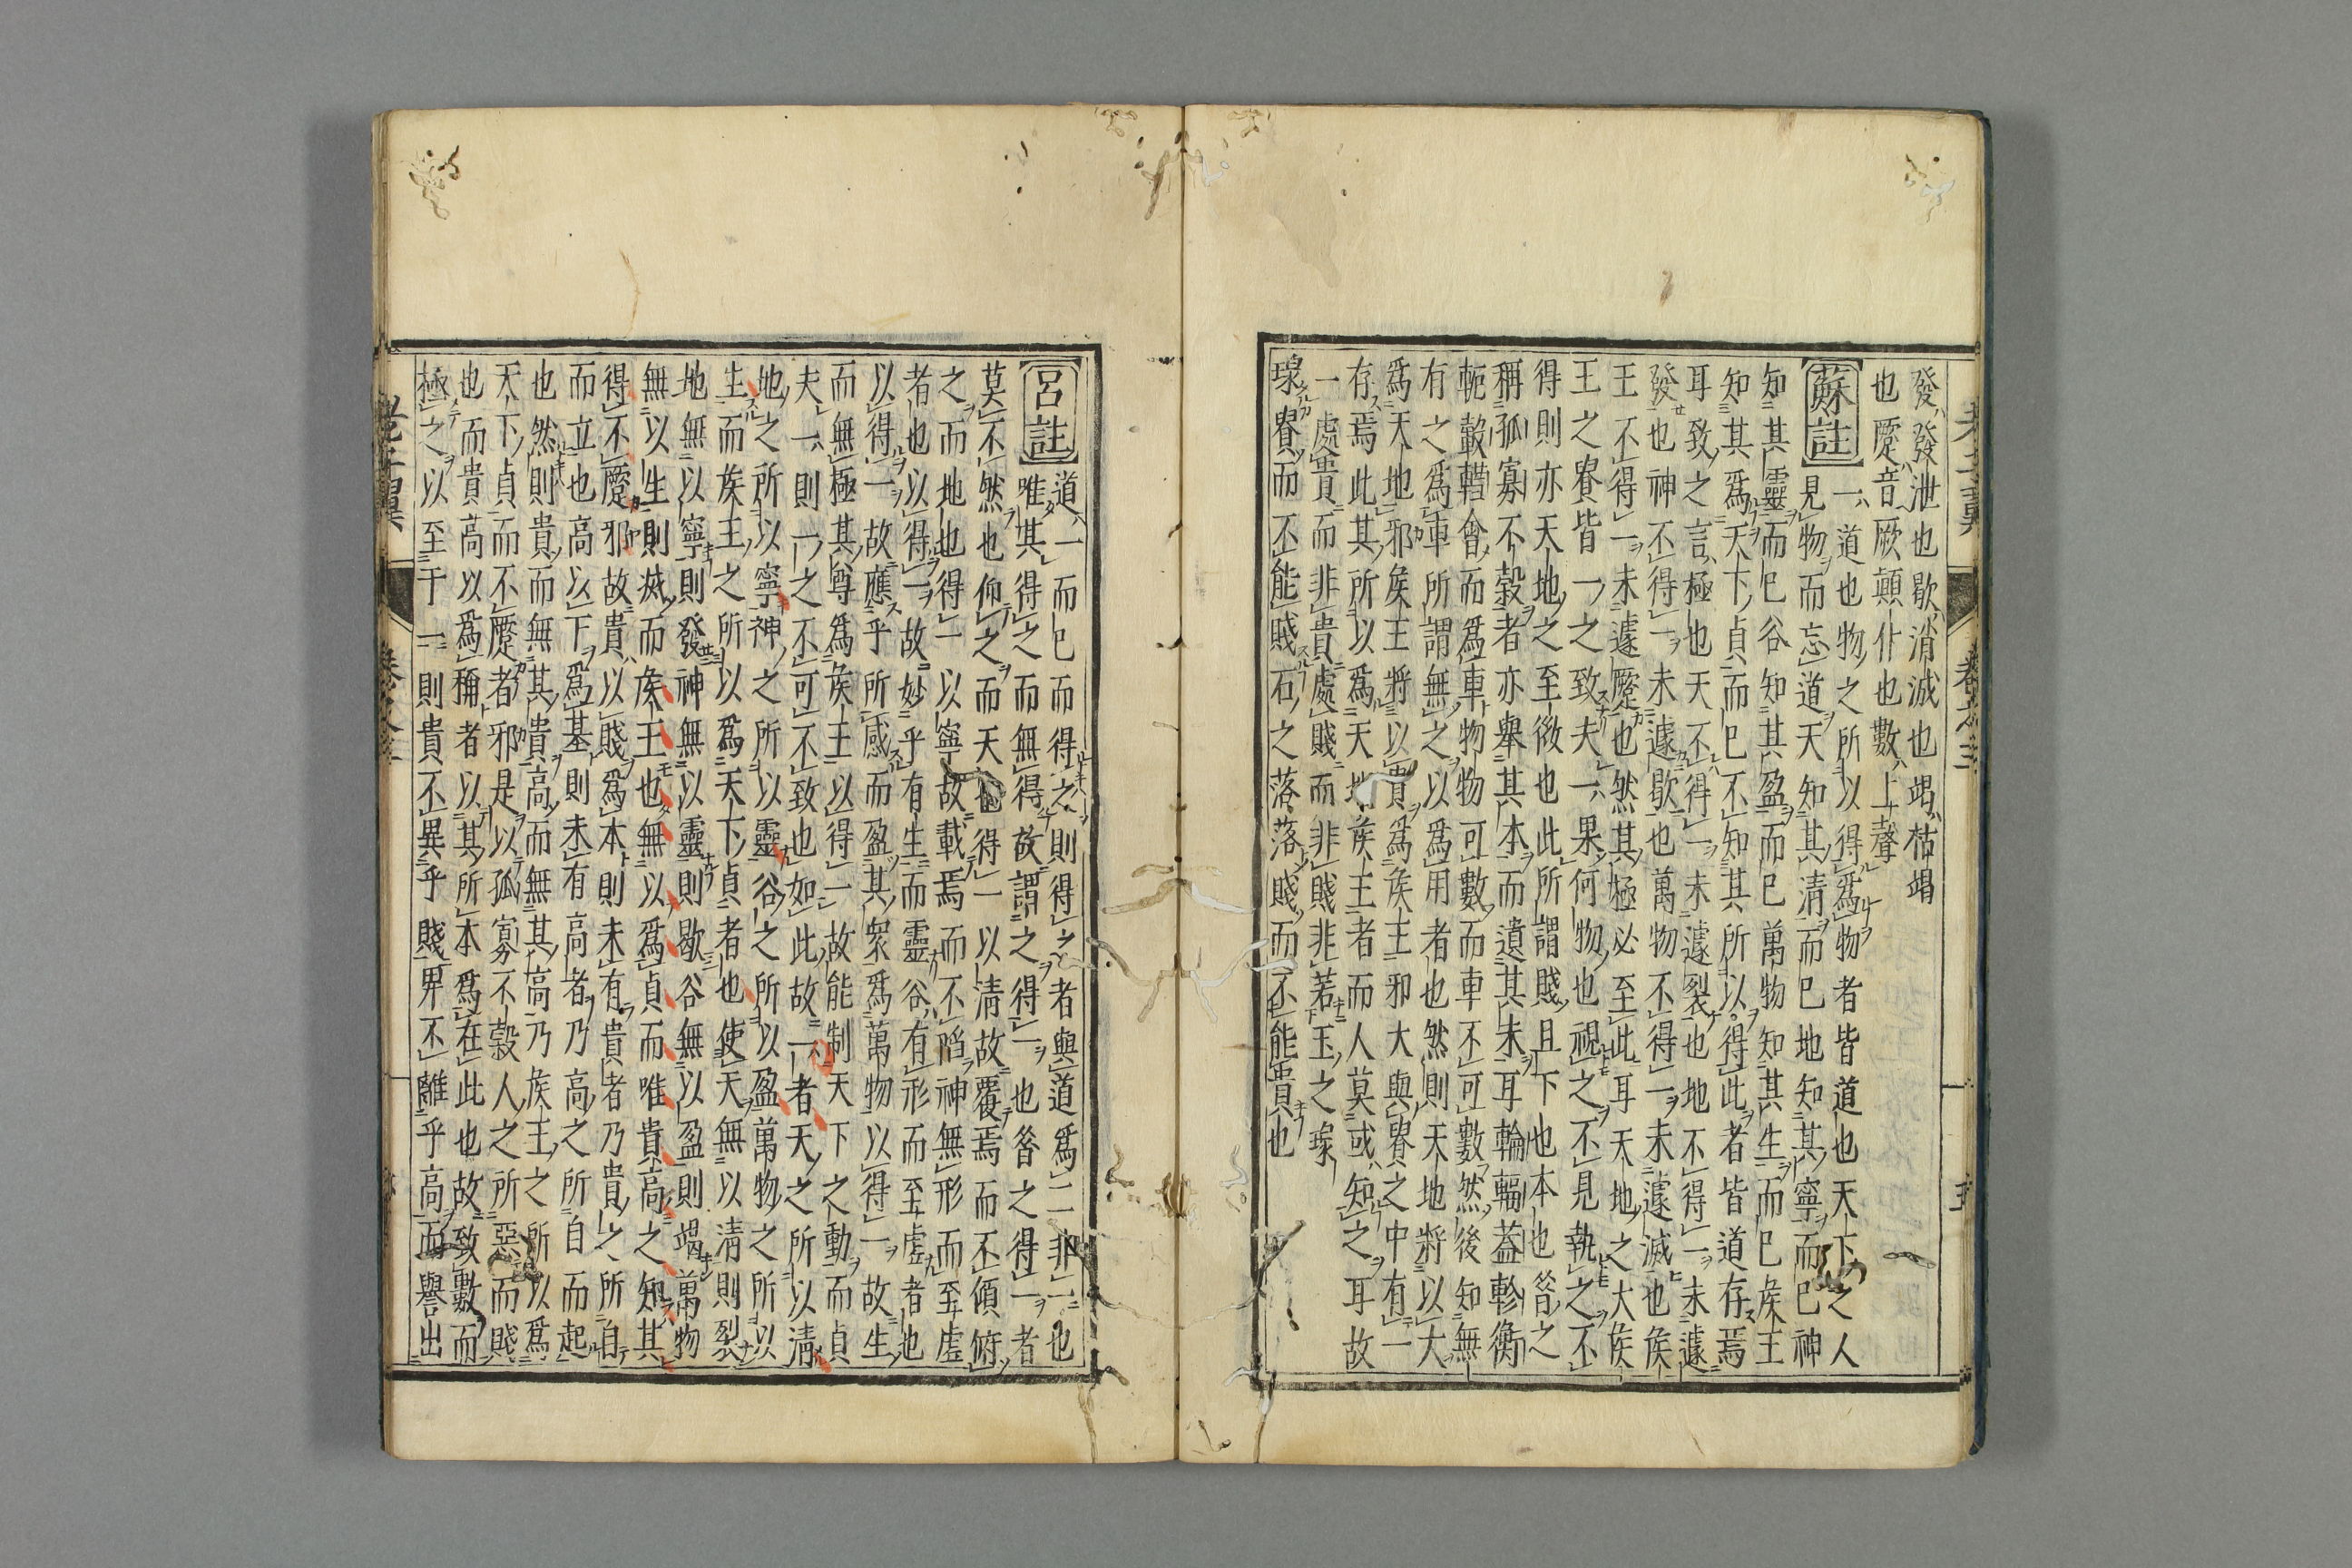 老子翼 卷之三 五
發發泄也歇消滅也竭枯竭
也蹷音厥顛仆也數上聲
蘇註 一道也物之所以得爲物者皆道也天下之人
見物而忘道天知其清而已地知其寧而已神
知其靈而已谷知其盈而已萬物知其生而已矦王
知其爲天下貞而已不知其所以得此者皆道存焉
耳致之言極也天不得一未遽裂也地不得一未遽
發也神不得一未遽歇也萬物不得一未遽滅也矦
王不得一未遽蹷也然其極必至此耳天地之大矦
王之貴皆一之致夫一果何物也視之不見執之不
得則亦天地之至微也此所謂賤且下也本也昝之
稱孤寡不榖者亦舉其本而遺其末耳輪輻蓋軫衡
軛轂轊會而爲車物物可數而車不可數然後知無
有之爲車所謂無之以爲用者也然則天地將以大
爲天地邪矦王將以貴爲矦王邪大與貴之中有一
存焉此其所以爲天地矦王者而人莫或知之耳故
一處貴而非貴處賤而非賤非若玉之琭
琭貴而不能賤石之落落賤而不能貴也
呂註 道一而已而得之則得之者與道爲二非一也
唯其得之而無得故謂之得一也昝之得一者
莫不然也仰之而天也得一以清故覆焉而不傾俯
之而地也得一以寧故載焉而不陷神無形而至虛
者也以得一故妙乎有生而靈谷有形而至虛者也
以得一故應乎所感而盈其衆爲萬物以得一故生
而無極其尊爲矦王以得一故能制天下之動而貞
夫一則一之不可不致也如此故一者天之所以清
地之所以寧神之所以靈谷之所以盈萬物之所以
生而矦王之所以爲天下貞者也使天無以清則裂
地無以寧則發神無以靈則歇谷無以盈則竭萬物
無以生則滅而矦王也無以爲貞而唯貴高之知其
得不蹷邪故貴以賤爲本則未有貴者乃貴之所自
而立也高以下爲基則未有高者乃高之所自而起
也然則貴而無其貴高而無其高乃矦王之所以爲
天下貞而不蹷者邪是以孤寡不榖人之所惡而賤
也而貴高以爲稱者以其所本爲在此也故致數而
極之以至于一則貴不異乎賤昇不離乎高而譽出
老子翼 卷之三